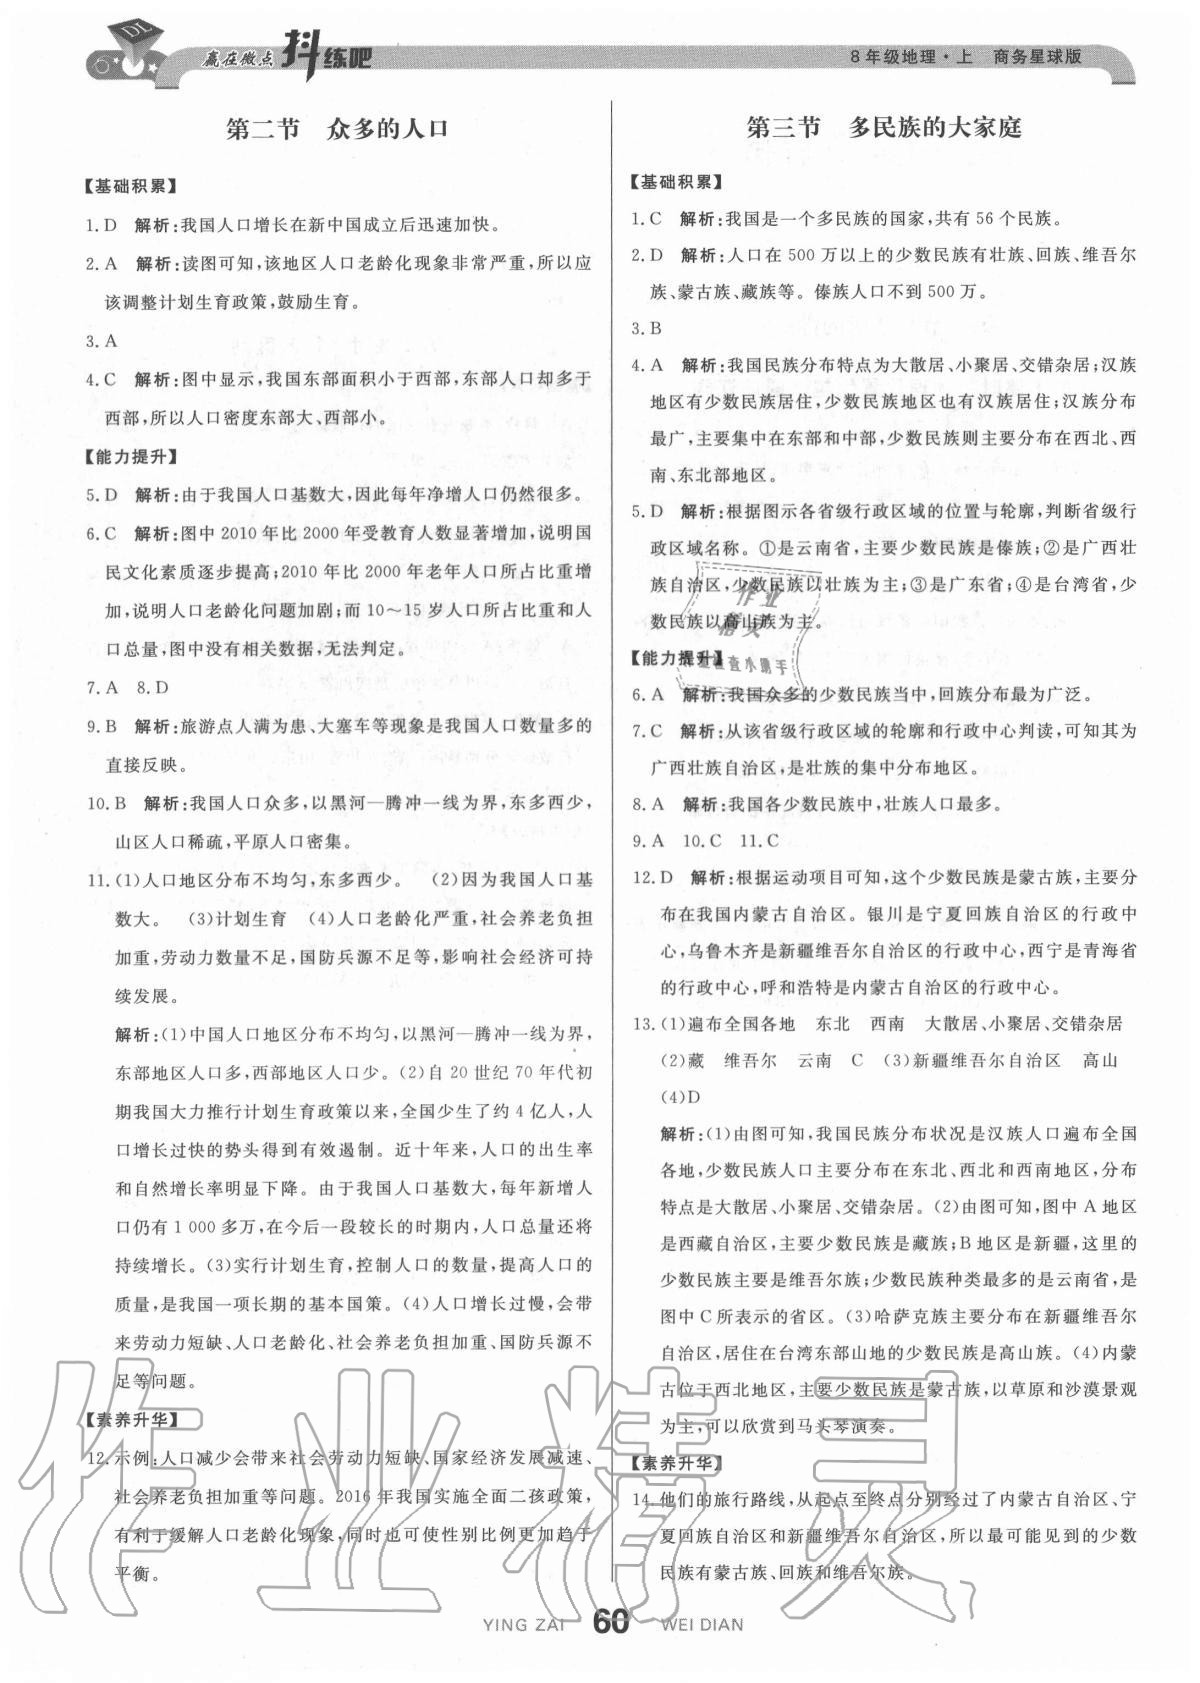 赢在微点 抖练吧
8年级地理·上 商务星球版
第二节 众多的人口
【基础积累】
1.D 解析:我国人口增长在新中国成立后迅速加快。
2.A 解析:读图可知,该地区人口老龄化现象非常严重,所以应
该调整计划生育政策,鼓励生育。
3.A
4.C 解析:图中显示,我国东部面积小于西部,东部人口却多于
西部,所以人口密度东部大、西部小。
【能力提升】
5.D 解析:由于我国人口基数大,因此每年净增人口仍然很多。
6.C 解析:图中2010年比2000年受教育人数显著增加,说明国
民文化素质逐步提高;2010年比2000年老年人口所占比重增
加,说明人口老龄化问题加剧;而10～15岁人口所占比重和人
口总量,图中没有相关数据,无法判定。
7.A 8.D
9.B 解析:旅游点人满为患、大塞车等现象是我国人口数量多的
直接反映。
10.B 解析:我国人口众多,以黑河—腾冲一线为界,东多西少,
山区人口稀疏,平原人口密集。
11.(1)人口地区分布不均匀,东多西少。 (2)因为我国人口基
数大。 (3)计划生育 (4)人口老龄化严重,社会养老负担
加重,劳动力数量不足,国防兵源不足等,影响社会经济可持
续发展。
解析:(1)中国人口地区分布不均匀,以黑河—腾冲一线为界,
东部地区人口多,西部地区人口少。(2)自20世纪70年代初
期我国大力推行计划生育政策以来,全国少生了约4亿人,人
口增长过快的势头得到有效遏制。近十年来,人口的出生率
和自然增长率明显下降。由于我国人口基数大,每年新增人
口仍有1 000多万,在今后一段较长的时期内,人口总量还将
持续增长。(3)实行计划生育,控制人口的数量,提高人口的
质量,是我国一项长期的基本国策。(4)人口增长过慢,会带
来劳动力短缺、人口老龄化、社会养老负担加重、国防兵源不
足等问题。
【素养升华】
12.示例:人口减少会带来社会劳动力短缺、国家经济发展减速、
社会养老负担加重等问题。2016年我国实施全面二孩政策,
有利于缓解人口老龄化现象,同时也可使性别比例更加趋于
平衡。
第三节 多民族的大家庭
【基础积累】
1.C 解析:我国是一个多民族的国家,共有56个民族。
2.D 解析:人口在500万以上的少数民族有壮族、回族、维吾尔
族、蒙古族、藏族等。傣族人口不到500万。
3.B
4.A 解析:我国民族分布特点为大散居、小聚居、交错杂居;汉族
地区有少数民族居住,少数民族地区也有汉族居住;汉族分布
最广,主要集中在东部和中部,少数民族则主要分布在西北、西
南、东北部地区。
5.D 解析:根据图示各省级行政区域的位置与轮廓,判断省级行
政区域名称。①是云南省,主要少数民族是傣族;②是广西壮
族自治区,少数民族以壮族为主;③是广东省;④是台湾省,少
数民族以高山族为主。
【能力提升】
6.A 解析:我国众多的少数民族当中,回族分布最为广泛。
7.C 解析:从该省级行政区域的轮廓和行政中心判读,可知其为
广西壮族自治区,是壮族的集中分布地区。
8.A 解析:我国各少数民族中,壮族人口最多。
9.A 10.C 11.C
12.D 解析:根据运动项目可知,这个少数民族是蒙古族,主要分
布在我国内蒙古自治区。银川是宁夏回族自治区的行政中
心,乌鲁木齐是新疆维吾尔自治区的行政中心,西宁是青海省
的行政中心,呼和浩特是内蒙古自治区的行政中心。
13.(1)遍布全国各地 东北 西南 大散居、小聚居、交错杂居
(2)藏 维吾尔 云南 C (3)新疆维吾尔自治区 高山
(4)D
解析:(1)由图可知,我国民族分布状况是汉族人口遍布全国
各地,少数民族人口主要分布在东北、西北和西南地区,分布
特点是大散居、小聚居、交错杂居。(2)由图可知,图中A地区
是西藏自治区,主要少数民族是藏族;B地区是新疆,这里的
少数民族主要是维吾尔族;少数民族种类最多的是云南省,是
图中C所表示的省区。(3)哈萨克族主要分布在新疆维吾尔
自治区,居住在台湾东部山地的少数民族是高山族。(4)内蒙
古位于西北地区,主要少数民族是蒙古族,以草原和沙漠景观
为主,可以欣赏到马头琴演奏。
【素养升华】
14.他们的旅行路线,从起点至终点分别经过了内蒙古自治区、宁
夏回族自治区和新疆维吾尔自治区,所以最可能见到的少数
民族有蒙古族、回族和维吾尔族。
作业精灵
YING ZAI 60 WEI DIAN